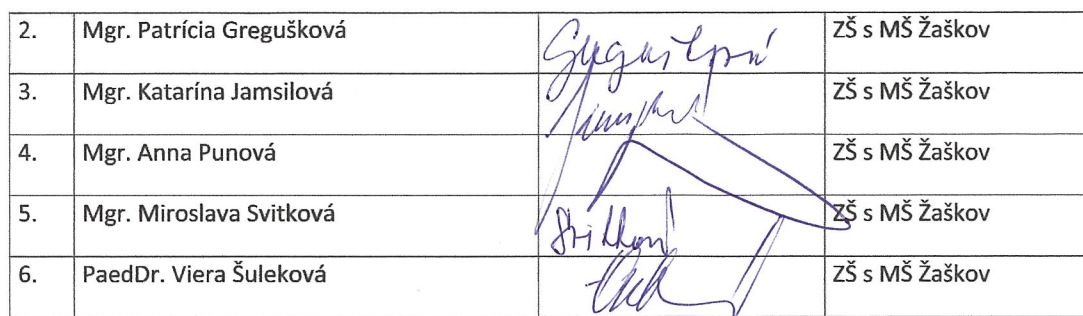 2. Mgr. Patrícia Gregušková ZŠ s MŠ Žaškov
3. Mgr. Katarína Jamsilová ZŠ s MŠ Žaškov
4. Mgr. Anna Punová ZŠ s MŠ Žaškov
5. Mgr. Miroslava Svitková ZŠ s MŠ Žaškov
6. PaedDr. Viera Šuleková ZŠ s MŠ Žaškov